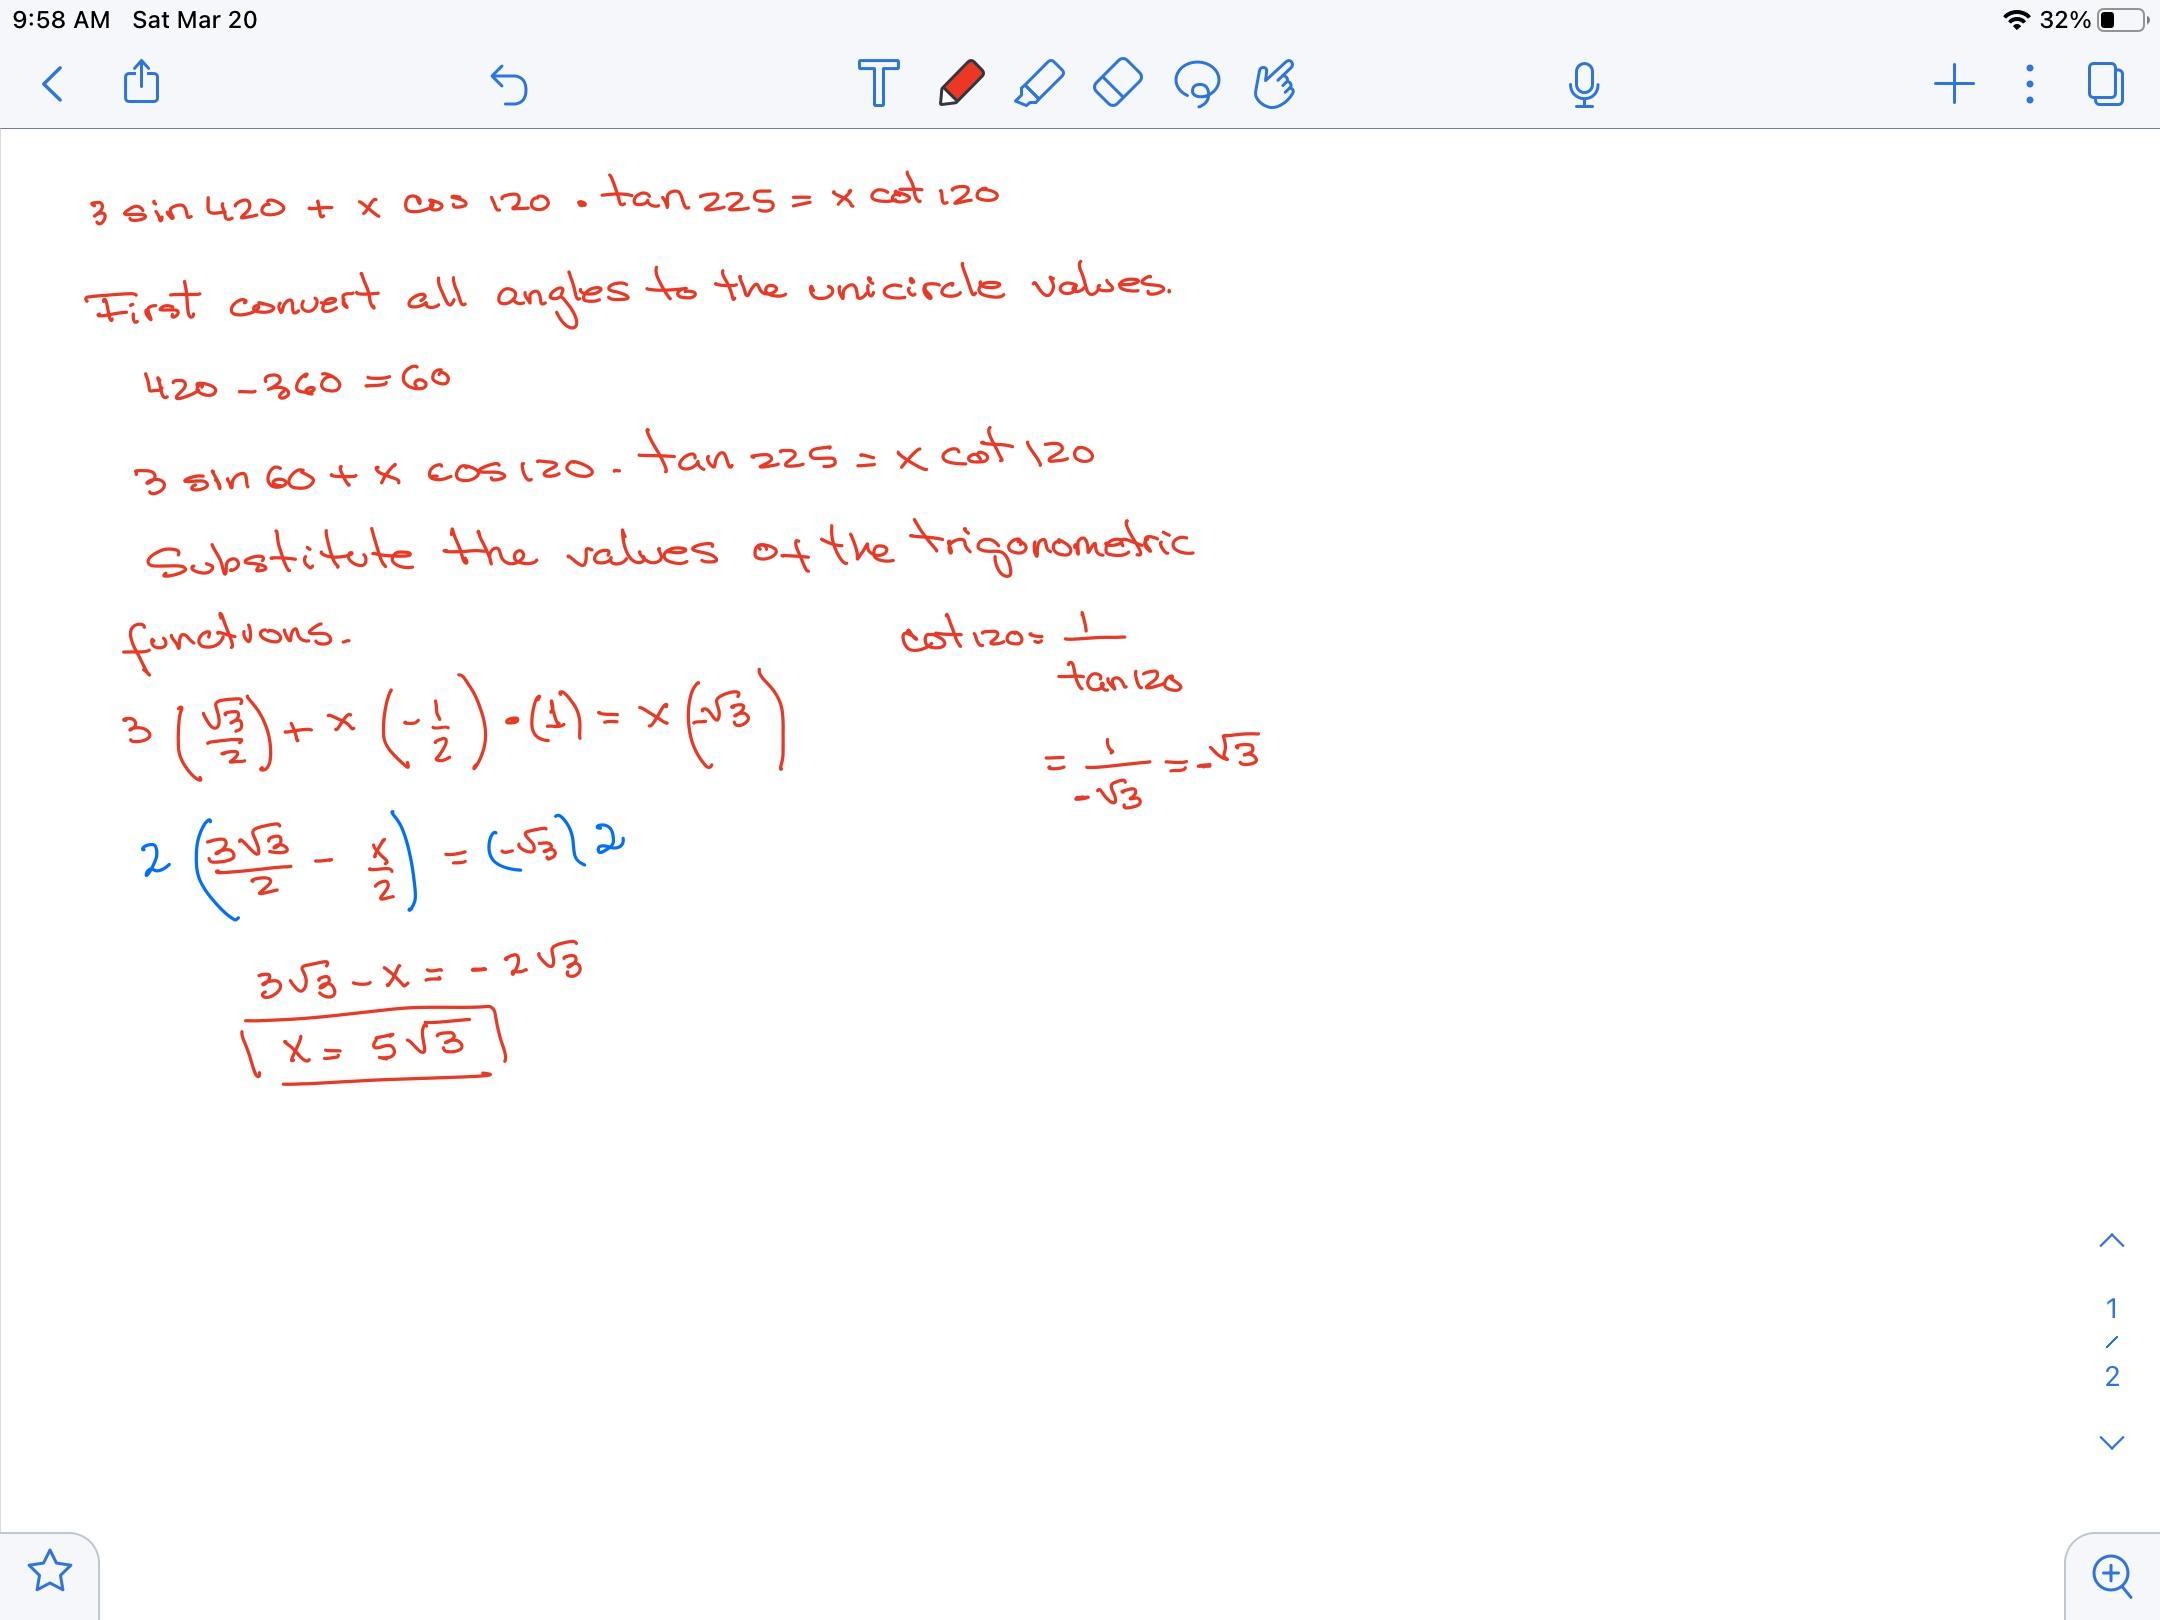 9:58 AM Sat Mar 20
32%
3 sin 420 + x cos 120 · tan 225 = x cot 120
First convert all angles to the unicircle values.
420 - 360 = 60
3 sin 60 + x cos 120 . tan 225 = x cot 120
Substitute the values of the trigonometric
functions.
cot 120 = 1/tan 120
3 (√3/2) + x (-1/2) · (1) = x (-√3)
= 1/-√3 = -√3
2 (3√3/2 - x/2) = (-√3) 2
3√3 - x = - 2√3
x = 5√3
1
/
2